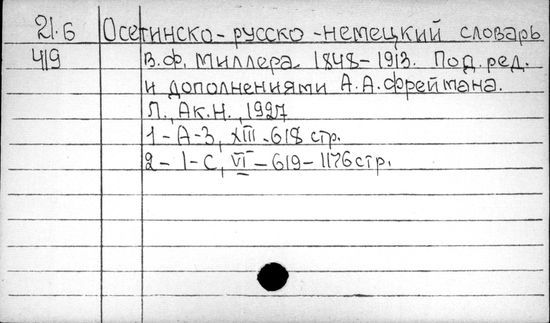 21.6 Осетинско-русско-немецкий словарь
419 В.Ф. Миллера. 1848-1913. Под. ред.
и дополнениями А.А.Фреймана.
Л., Ак.Н., 1927
1-А-З, XIII-618 стр.
2-I-С, VI-619-1176 стр.